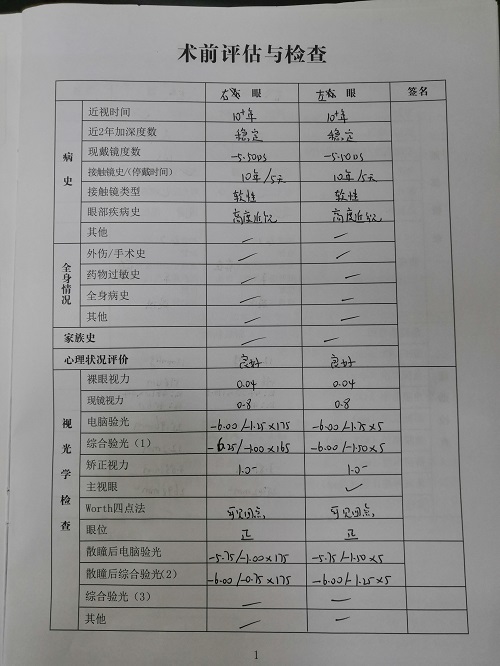 术前评估与检查
右 眼 左 眼 签名
病史
近视时间 10+年 10+年
近2年加深度数 稳定 稳定
现戴镜度数 -5.50DS -5.50DS
接触镜史/(停戴时间) 10年/5天 10年/5天
接触镜类型 软性 软性
眼部疾病史 高度近视 高度近视
其他 — —
全身情况
外伤/手术史 — —
药物过敏史 — —
全身病史 — —
其他 — —
家族史 — —
心理状况评价 良好 良好
视光学检查
裸眼视力 0.04 0.04
现镜视力 0.8 0.8
电脑验光 -6.00/-1.25×175 -6.00/-1.75×5
综合验光（1） -6.25/-1.00×165 -6.00/-1.50×5
矫正视力 1.0- 1.0-
主视眼 ✓
Worth四点法 可见四点 可见四点
眼位 正 正
散瞳后电脑验光 -5.75/-1.00×175 -5.75/-1.50×5
散瞳后综合验光(2) -6.00/-0.75×175 -6.00/-1.25×5
综合验光（3） — —
其他 — —
1